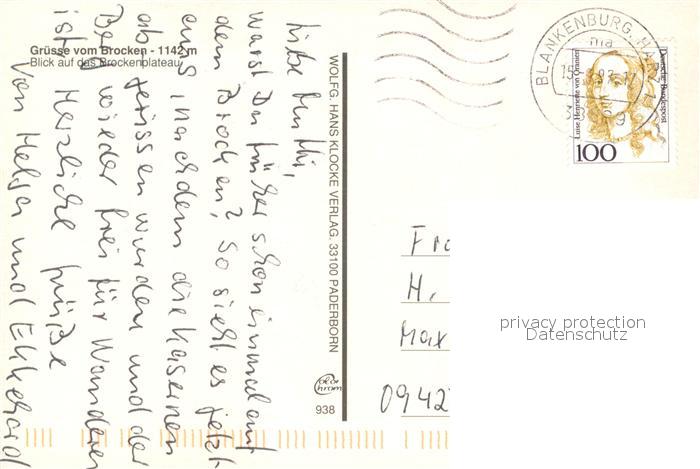 Grüsse vom Brocken - 1142 m
Blick auf das Brockenplateau
Liebe Mutti,
warst Du früher schon einmal auf
dem Brocken? So sieht es jetzt
aus, nachdem die Kasernen
abgerissen wurden und der
Berg wieder frei für Wanderer
ist. Herzliche Grüße
von Helga und Ekkehard
WOLFG. HANS KLOCKE VERLAG, 33100 PADERBORN
Color
Chrom
938
BLANKENBURG, HARZ
Deutsche Bundespost
Luise Henriette von Oranien
100
Fra
H.
Max
0942
privacy protection
Datenschutz